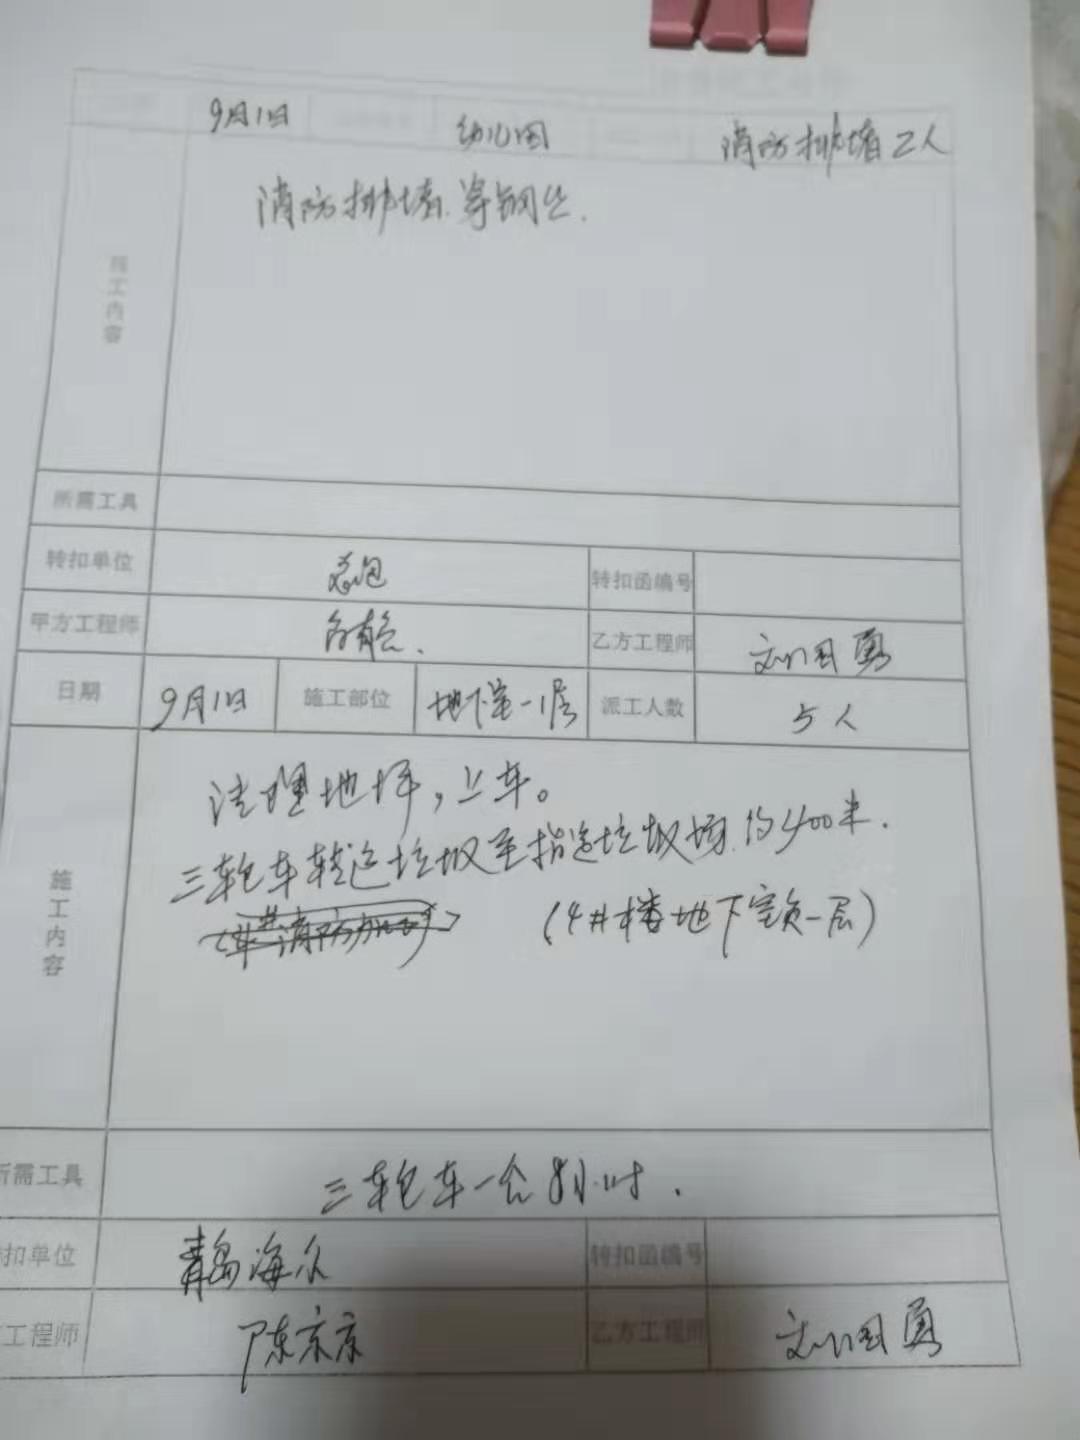 9月1日 幼儿园 消防排堵 2人
施工内容
消防排堵.穿钢丝.
所需工具
转扣单位 总包 转扣函编号
甲方工程师 乙方工程师 刘国勇
日期 9月1日 施工部位 地下室-1层 派工人数 5人
施工内容
清理地坪,上车。
三轮车转运垃圾至指定垃圾场.约400米.
(4#楼地下室负一层)
所需工具 三轮车一台 8小时.
扣单位 青岛海尔 转扣函编号
工程师 陈京京 乙方工程师 刘国勇